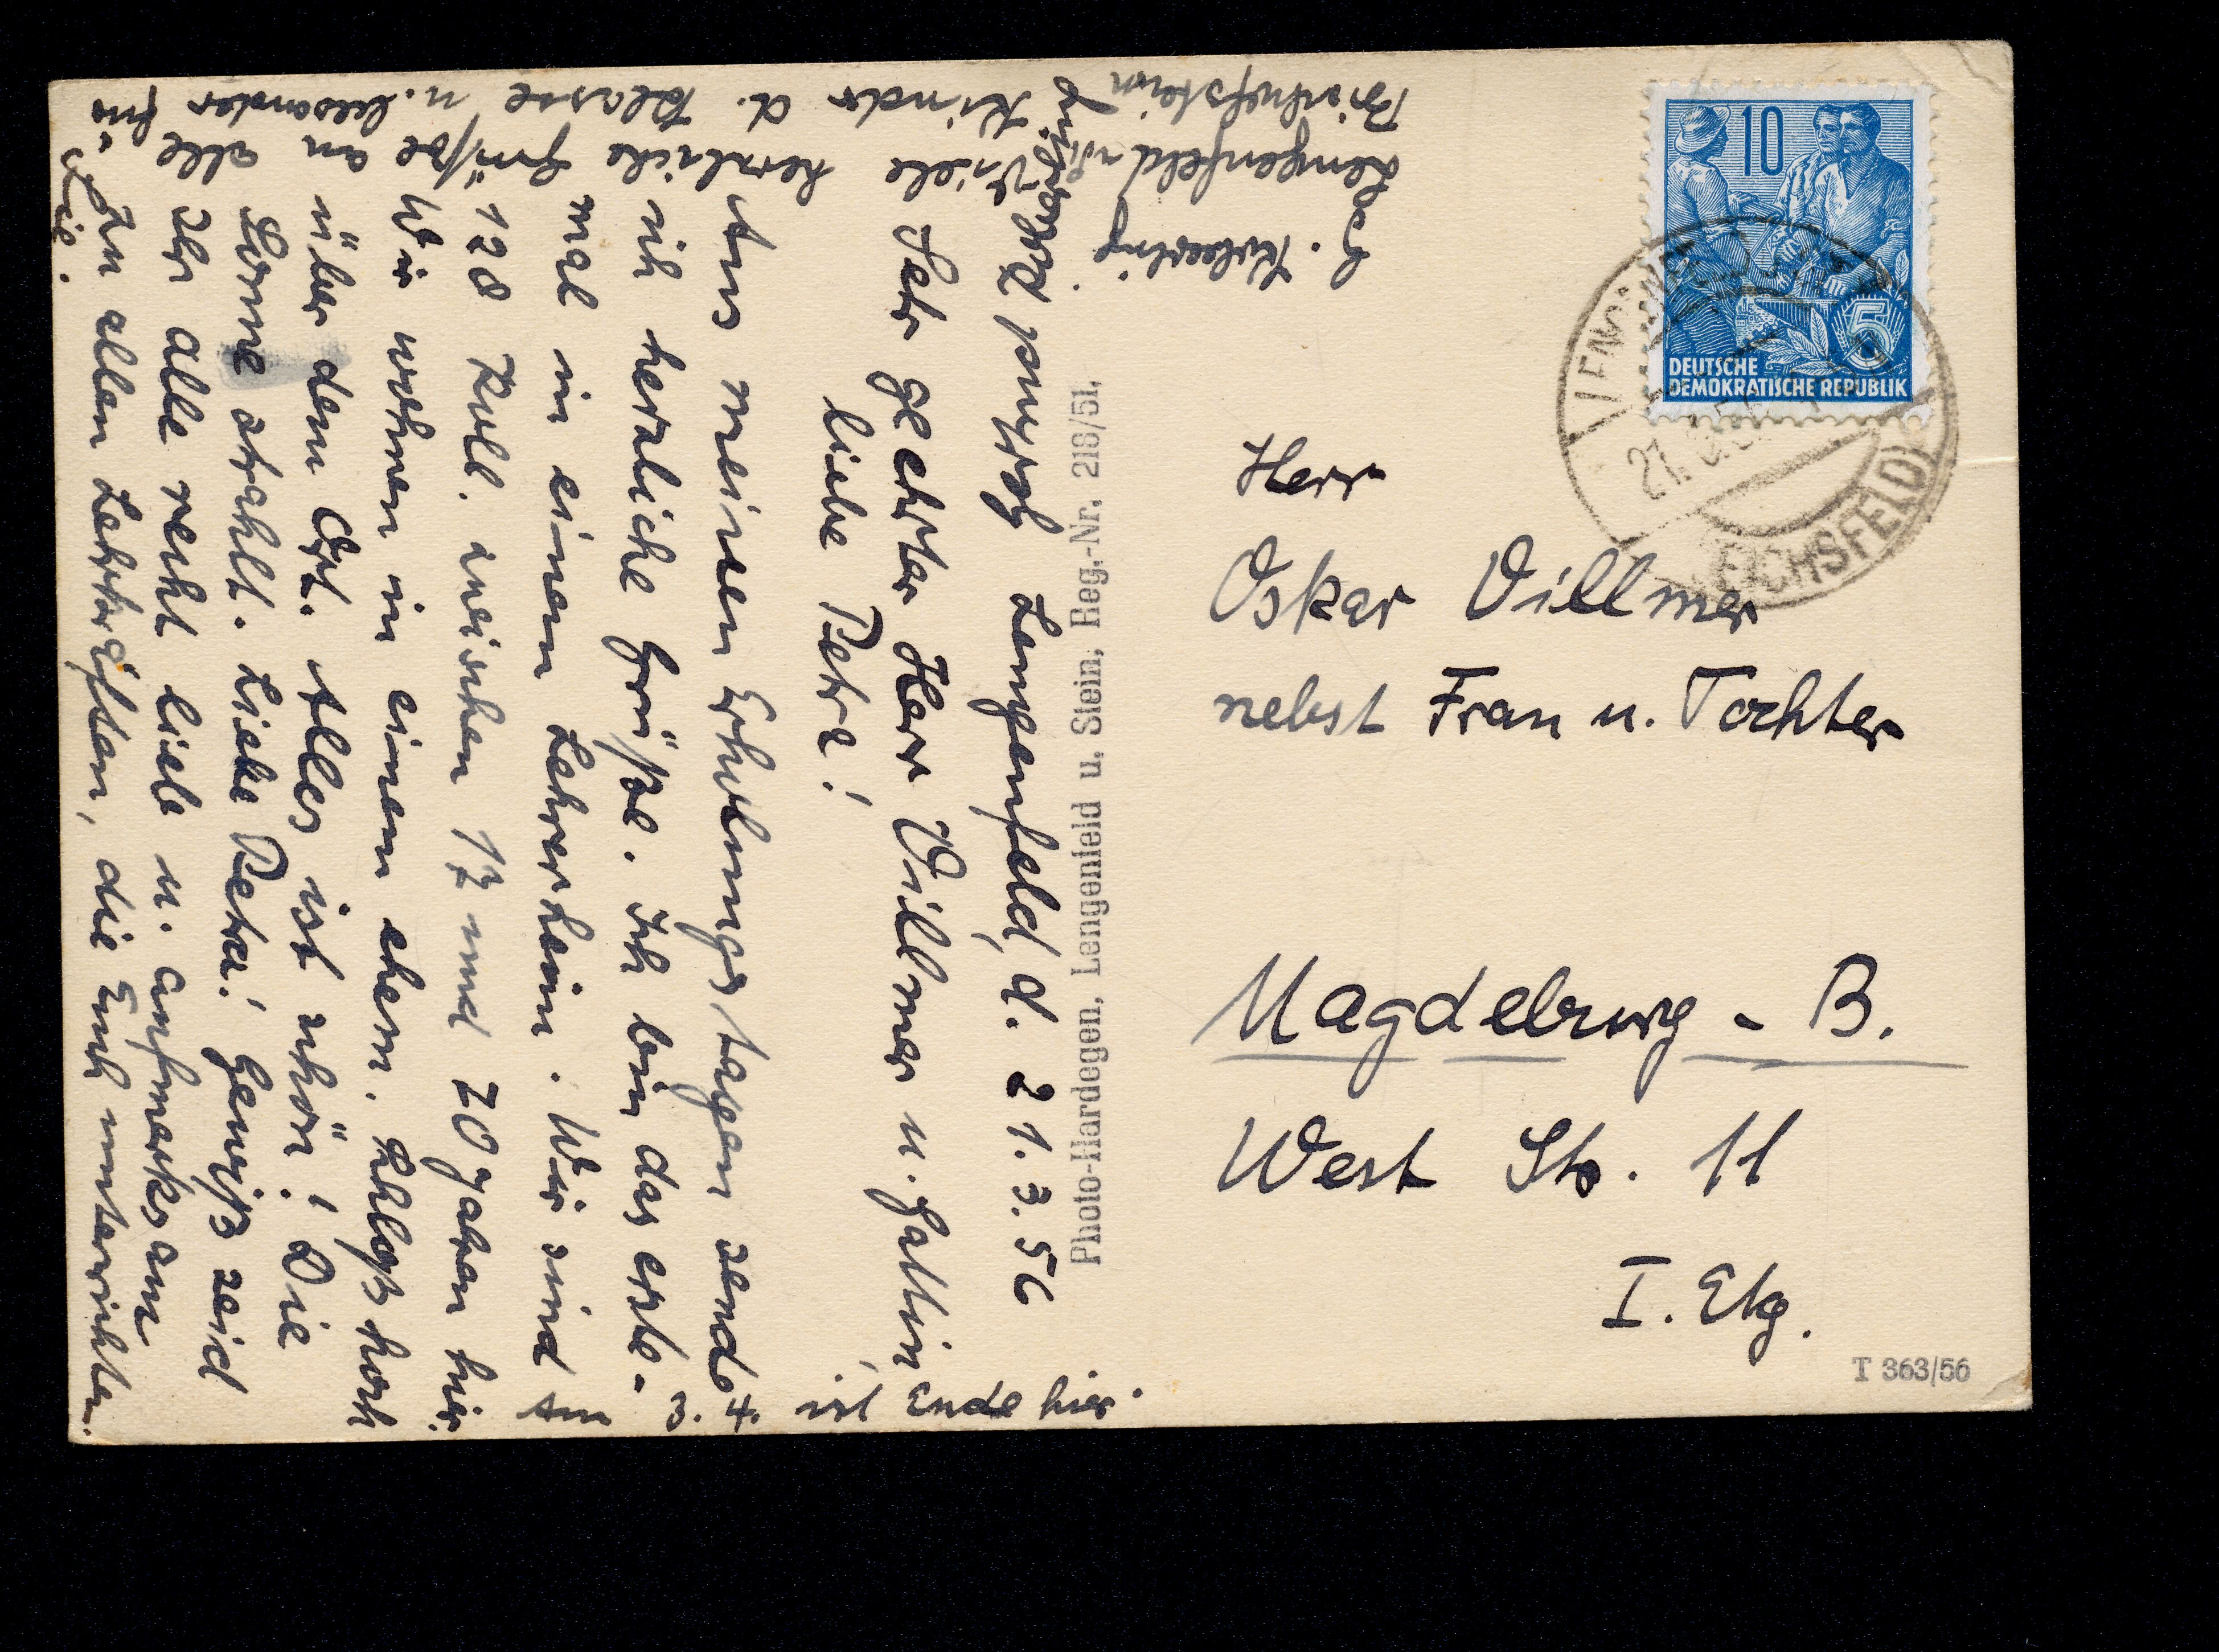 10
5
DEUTSCHE
DEMOKRATISCHE REPUBLIK
EICHSFELD
Herr
Oskar Villmer
nebst Frau u. Tochter
Magdeburg - B.
West Str. 11
I. Etg.
T 363/56
Photo-Hardegen, Lengenfeld u. Stein, Reg.-Nr. 218/51.
Lengenfeld, d. 21.3.56
Sehr geehrter Herr Villmer u. Gattin,
liebe Petra!
Aus meinen Erholungstagen sendet
ich herzliche Grüße. Ich bin das erste-
mal in einem Lehrerheim. Wir sind
120 Koll. zwischen 17 und 70 Jahren hier.
Wir wohnen in einem ehem. Schloß hoch
über dem Ort. Alles ist schön! Die
Sonne strahlt. Liebe Petra! Gewiß seid
Ihr alle recht lieb u. aufmerksam
zu allen Lehrkräften, die Euch unterrichten.
Viele herzliche Grüße an alle
Kinder d. Klasse u. besonders für
Sie.
Lengenfeld
Bischofstein
Am
ist Ende hier.